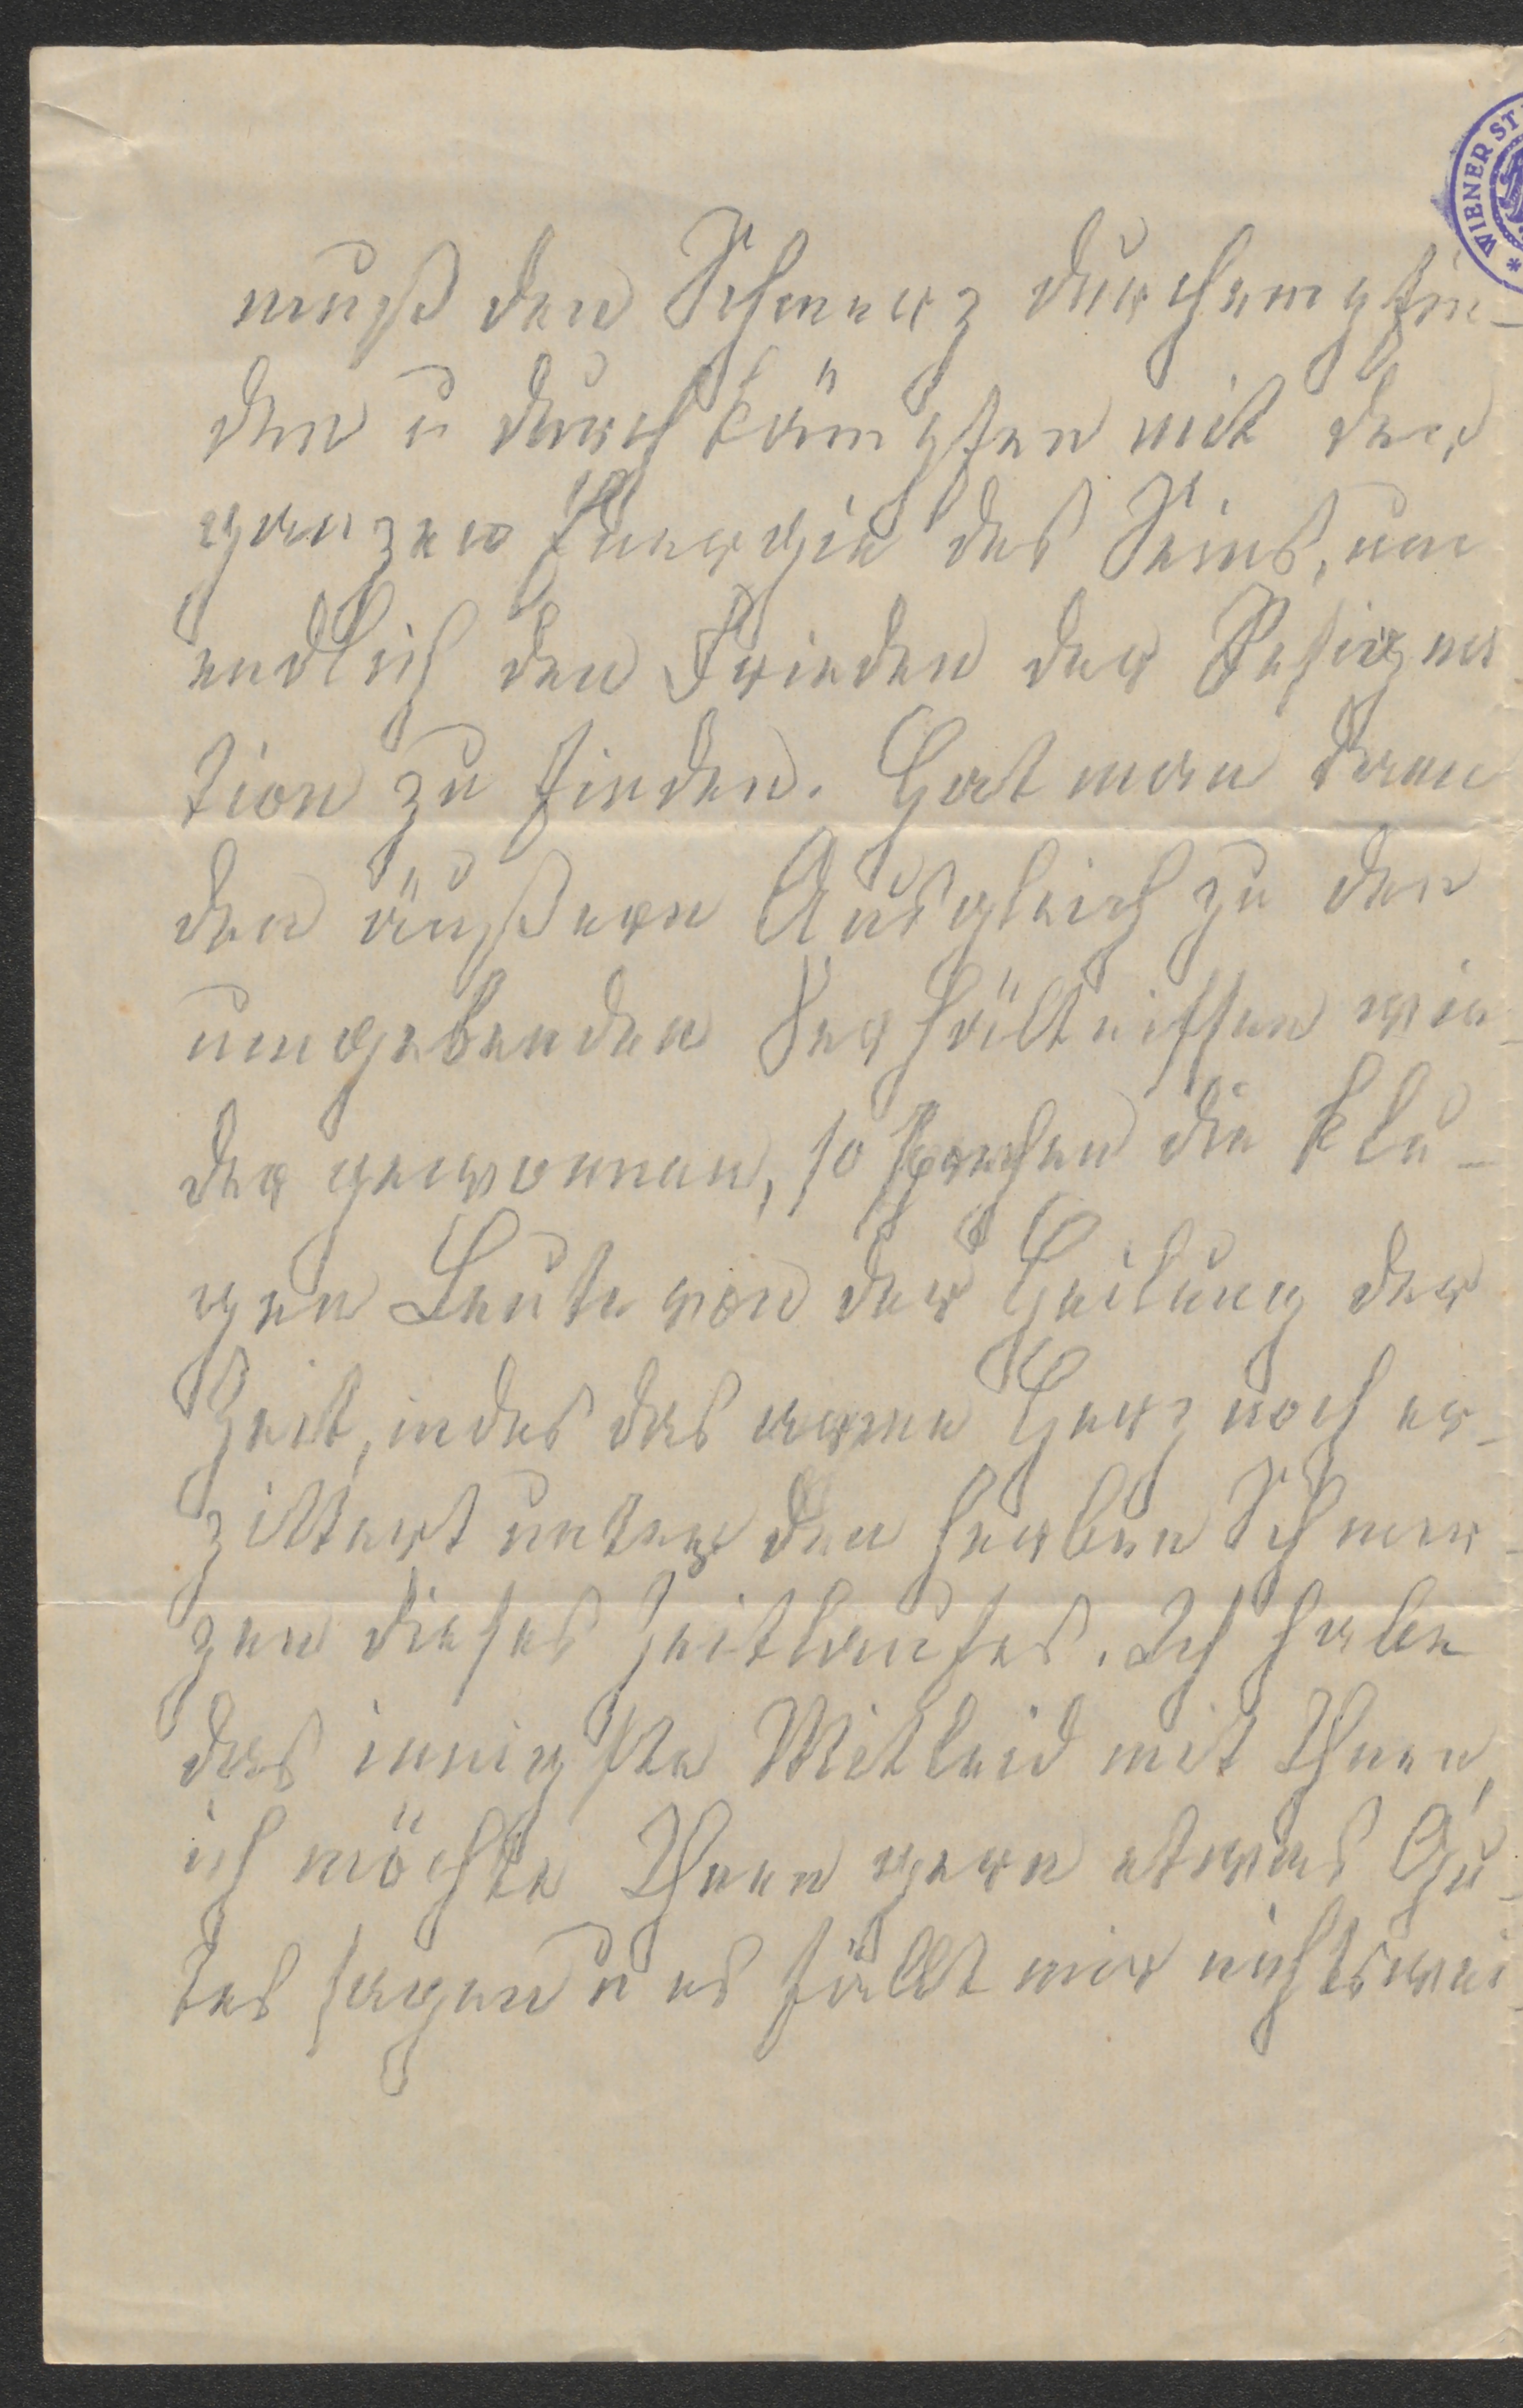 WIENER ST
muß den Schmerz durchempfin-
den u durchkämpfen mit der
ganzen Energie des Seins, um
endlich den Frieden der Resigna
tion zu finden. Hat man dann
den äußern Ausgleich zu den
umgebenden Verhältnissen wie-
der gewonnen, so sprechen die klu-
gen Leute von der Heilung der
Zeit, indes das arme Herz noch er-
zittert unter den herben Schmer-
zen dieses Zeitlaufes. Ich habe
das innigste Mitleid mit Ihnen,
ich möchte Ihnen gern etwas Gu-
tes sagen u es fällt mir nichts wei-